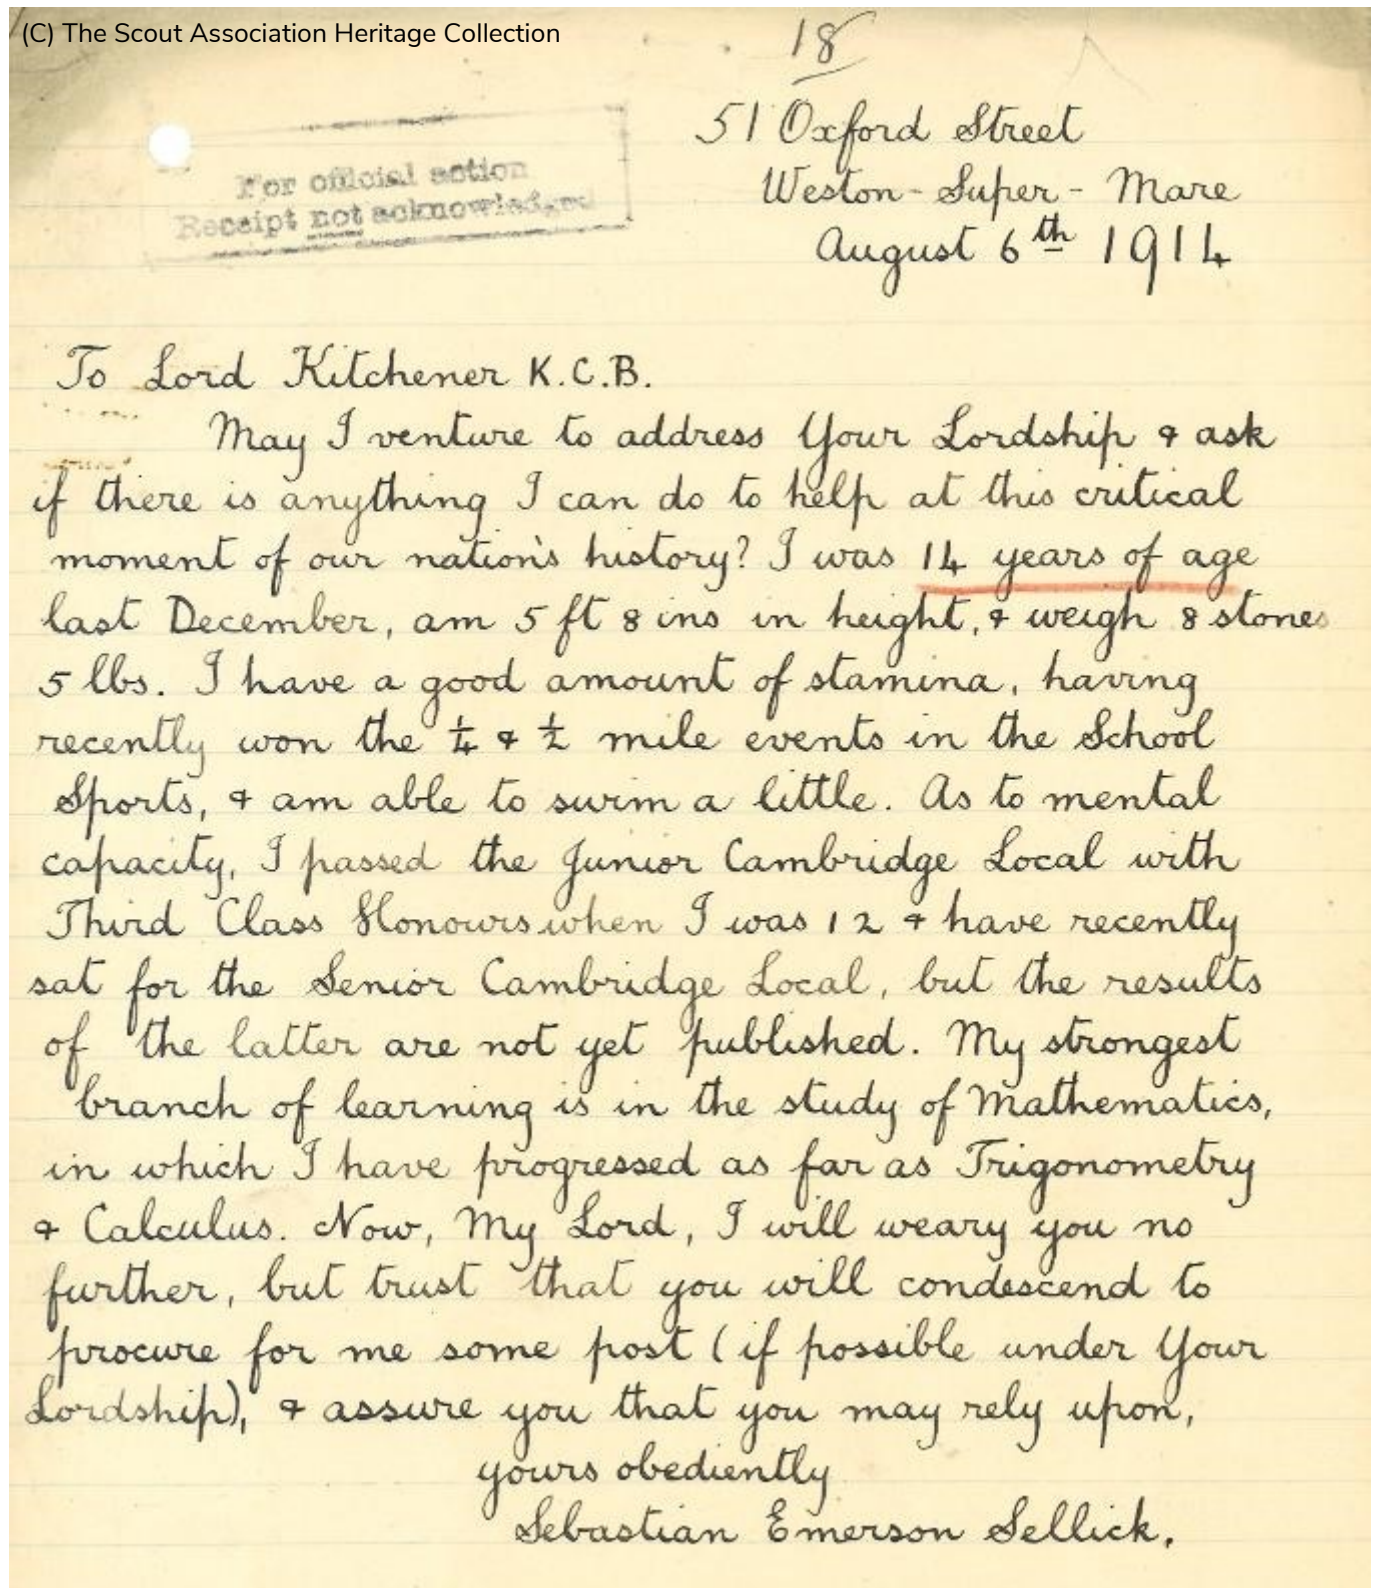 (C) The Scout Association Heritage Collection
18
For official action
Receipt not acknowledged
51 Oxford Street
Weston-Super-Mare
August 6th 1914
To Lord Kitchener K.C.B.
May I venture to address Your Lordship & ask
if there is anything I can do to help at this critical
moment of our nation's history? I was 14 years of age
last December, am 5 ft 8 ins in height, & weigh 8 stones
5 lbs. I have a good amount of stamina, having
recently won the ¼ & ½ mile events in the School
Sports, & am able to swim a little. As to mental
capacity, I passed the Junior Cambridge Local with
Third Class Honours when I was 12 & have recently
sat for the Senior Cambridge Local, but the results
of the latter are not yet published. My strongest
branch of learning is in the study of Mathematics,
in which I have progressed as far as Trigonometry
& Calculus. Now, My Lord, I will weary you no
further, but trust that you will condescend to
procure for me some post (if possible under Your
Lordship), & assure you that you may rely upon,
yours obediently
Sebastian Emerson Sellick.